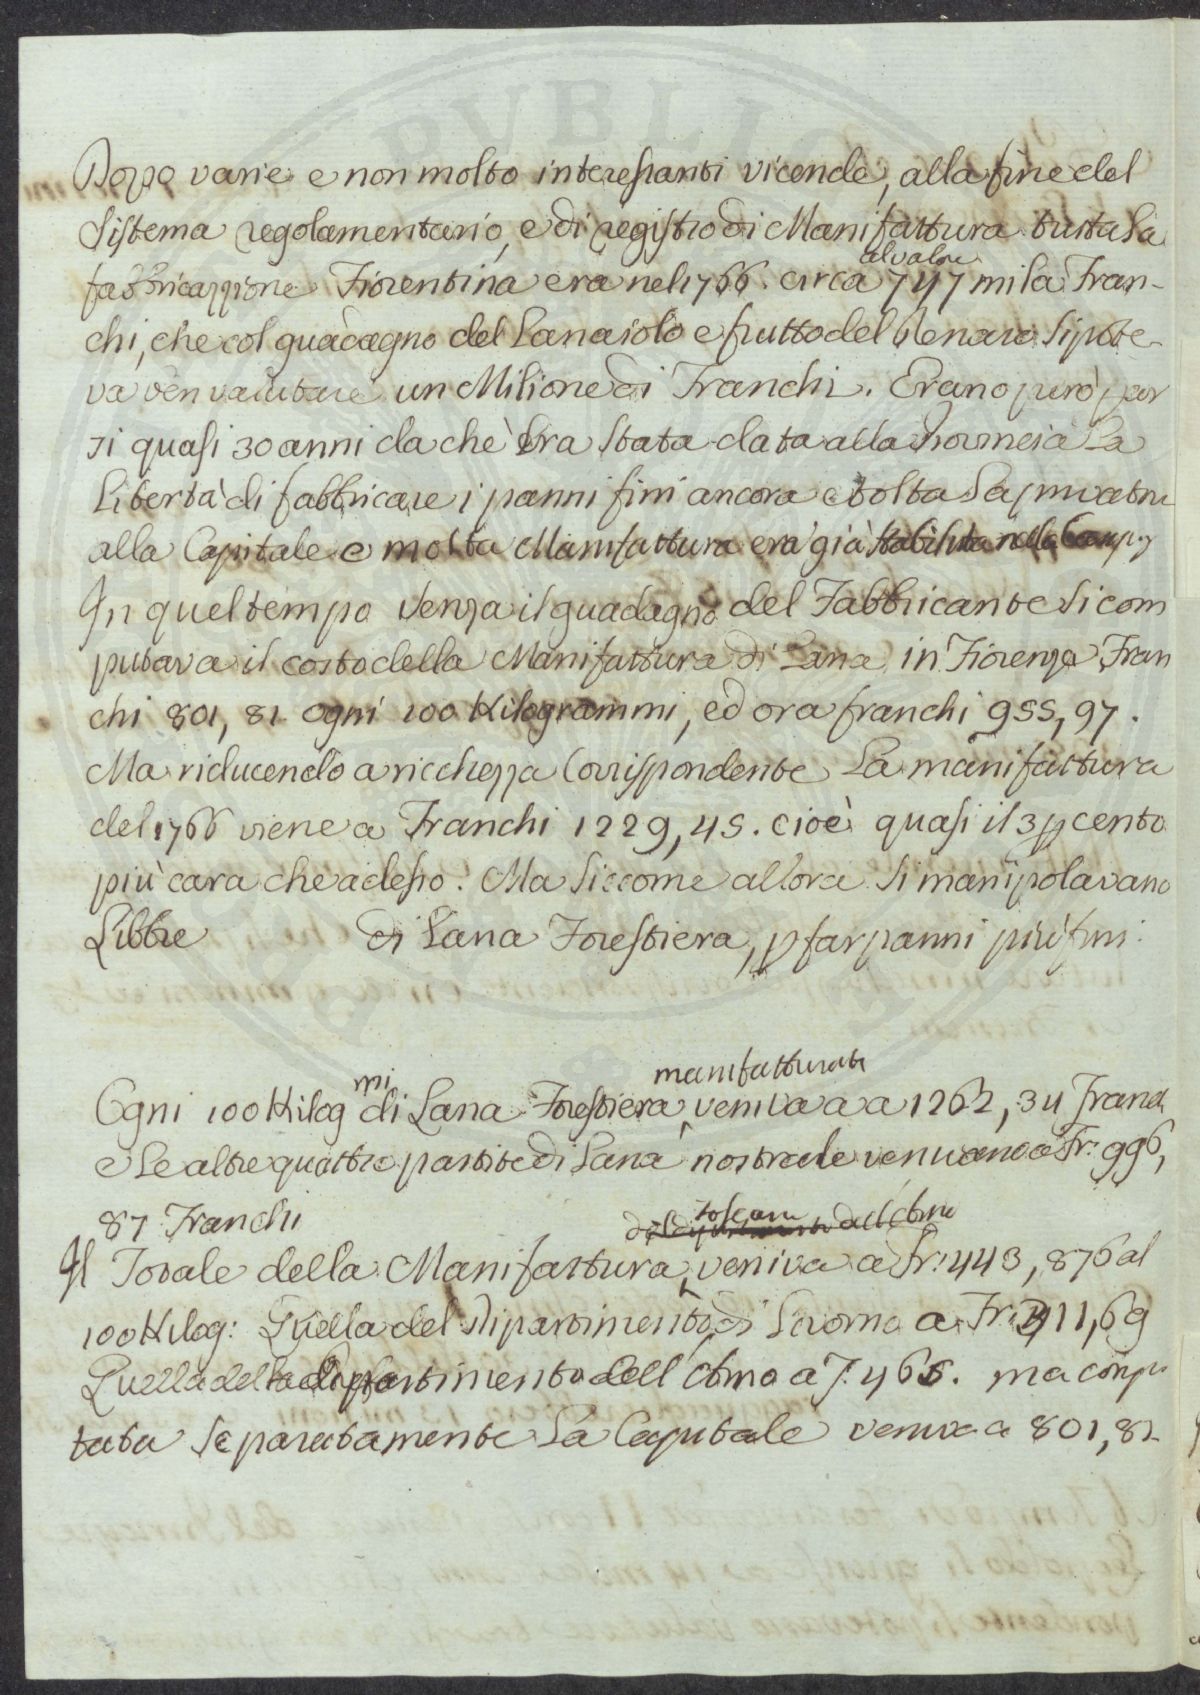 Dopo varie e non molto interessanti vicende, alla fine del
Sistema regolamentario, e di registro di Manifattura tutta la
al valore
fabbricazzione Fiorentina era nel 1766. circa 747 mila Fran-
chi, che col guadagno del Lanaiolo e frutto del Denaro si pote-
va ben valutare un Milione di Franchi. Erano però par
si quasi 30 anni da che era stata data alla Provincia La
Libertà di fabbricare i panni fini ancora e tolta la privativa
alla Capitale e molta Manifattura era già stabilita nella Camp.
In quel tempo senza il guadagno del Fabbricante si com
putava il costo della Manifattura di Lana in Fiorenza Fran
chi 801, 81 ogni 100 Kilogrammi, ed ora franchi 955, 97.
Ma riducendo a ricchezza Corrispondente La manifattura
del 1766 viene a Franchi 1229, 45. cioè quasi il 3 p cento
più cara che adesso. Ma siccome allora si manipolavano
Libbre di Lana Forestiera, p far panni più fini.
manifatturata
Ogni 100 Kilog mi di Lana Forestiera veniva a a 1262, 34 Franch
e Le altre quattro partite di Lana nostrale venivano a Fr: 996,
87 Franchi
toscana dell'Arno
Il Totale della Manifattura, veniva a Fr: 443, 876 al
100 Kilog: Quella del Dipartimento di Livorno a Fr: 411,69
Quella del Dipartimento dell'Arno a F. 465. ma compu
tata separatamente La Capitale veniva a 801, 81